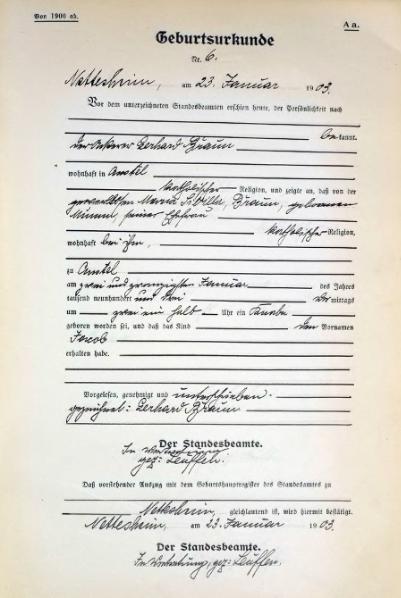 Von 1900 ab.
A a.
Geburtsurkunde
Nr. 6.
Nettesheim, am 23. Januar 1903.
Vor dem unterzeichneten Standesbeamten erschien heute, der Persönlichkeit nach
be kannt.
der Gerhard Braun
wohnhaft in Anstel
katholischer Religion, und zeigte an, daß von der
Maria Sibilla, Braun, geborenen
seiner Ehefrau
katholischer Religion,
wohnhaft bei ihm,
zu Anstel
am zwei und zwanzigsten Januar des Jahres
tausend neunhundert und drei Vor mittags
um zwei ein halb Uhr ein Knabe
geboren worden sei, und daß das Kind den Vornamen
Jacob
erhalten habe.
Vorgelesen, genehmigt und unterschrieben.
gezeichnet: Gerhard Braun
Der Standesbeamte.
In Vertretung
gez: Leuffen.
Daß vorstehender Auszug mit dem Geburtshauptregister des Standesamtes zu
Nettesheim, gleichlautend ist, wird hiermit bestätigt.
Nettesheim, am 23. Januar 1903.
Der Standesbeamte.
In Vertretung, gez: Leuffen.